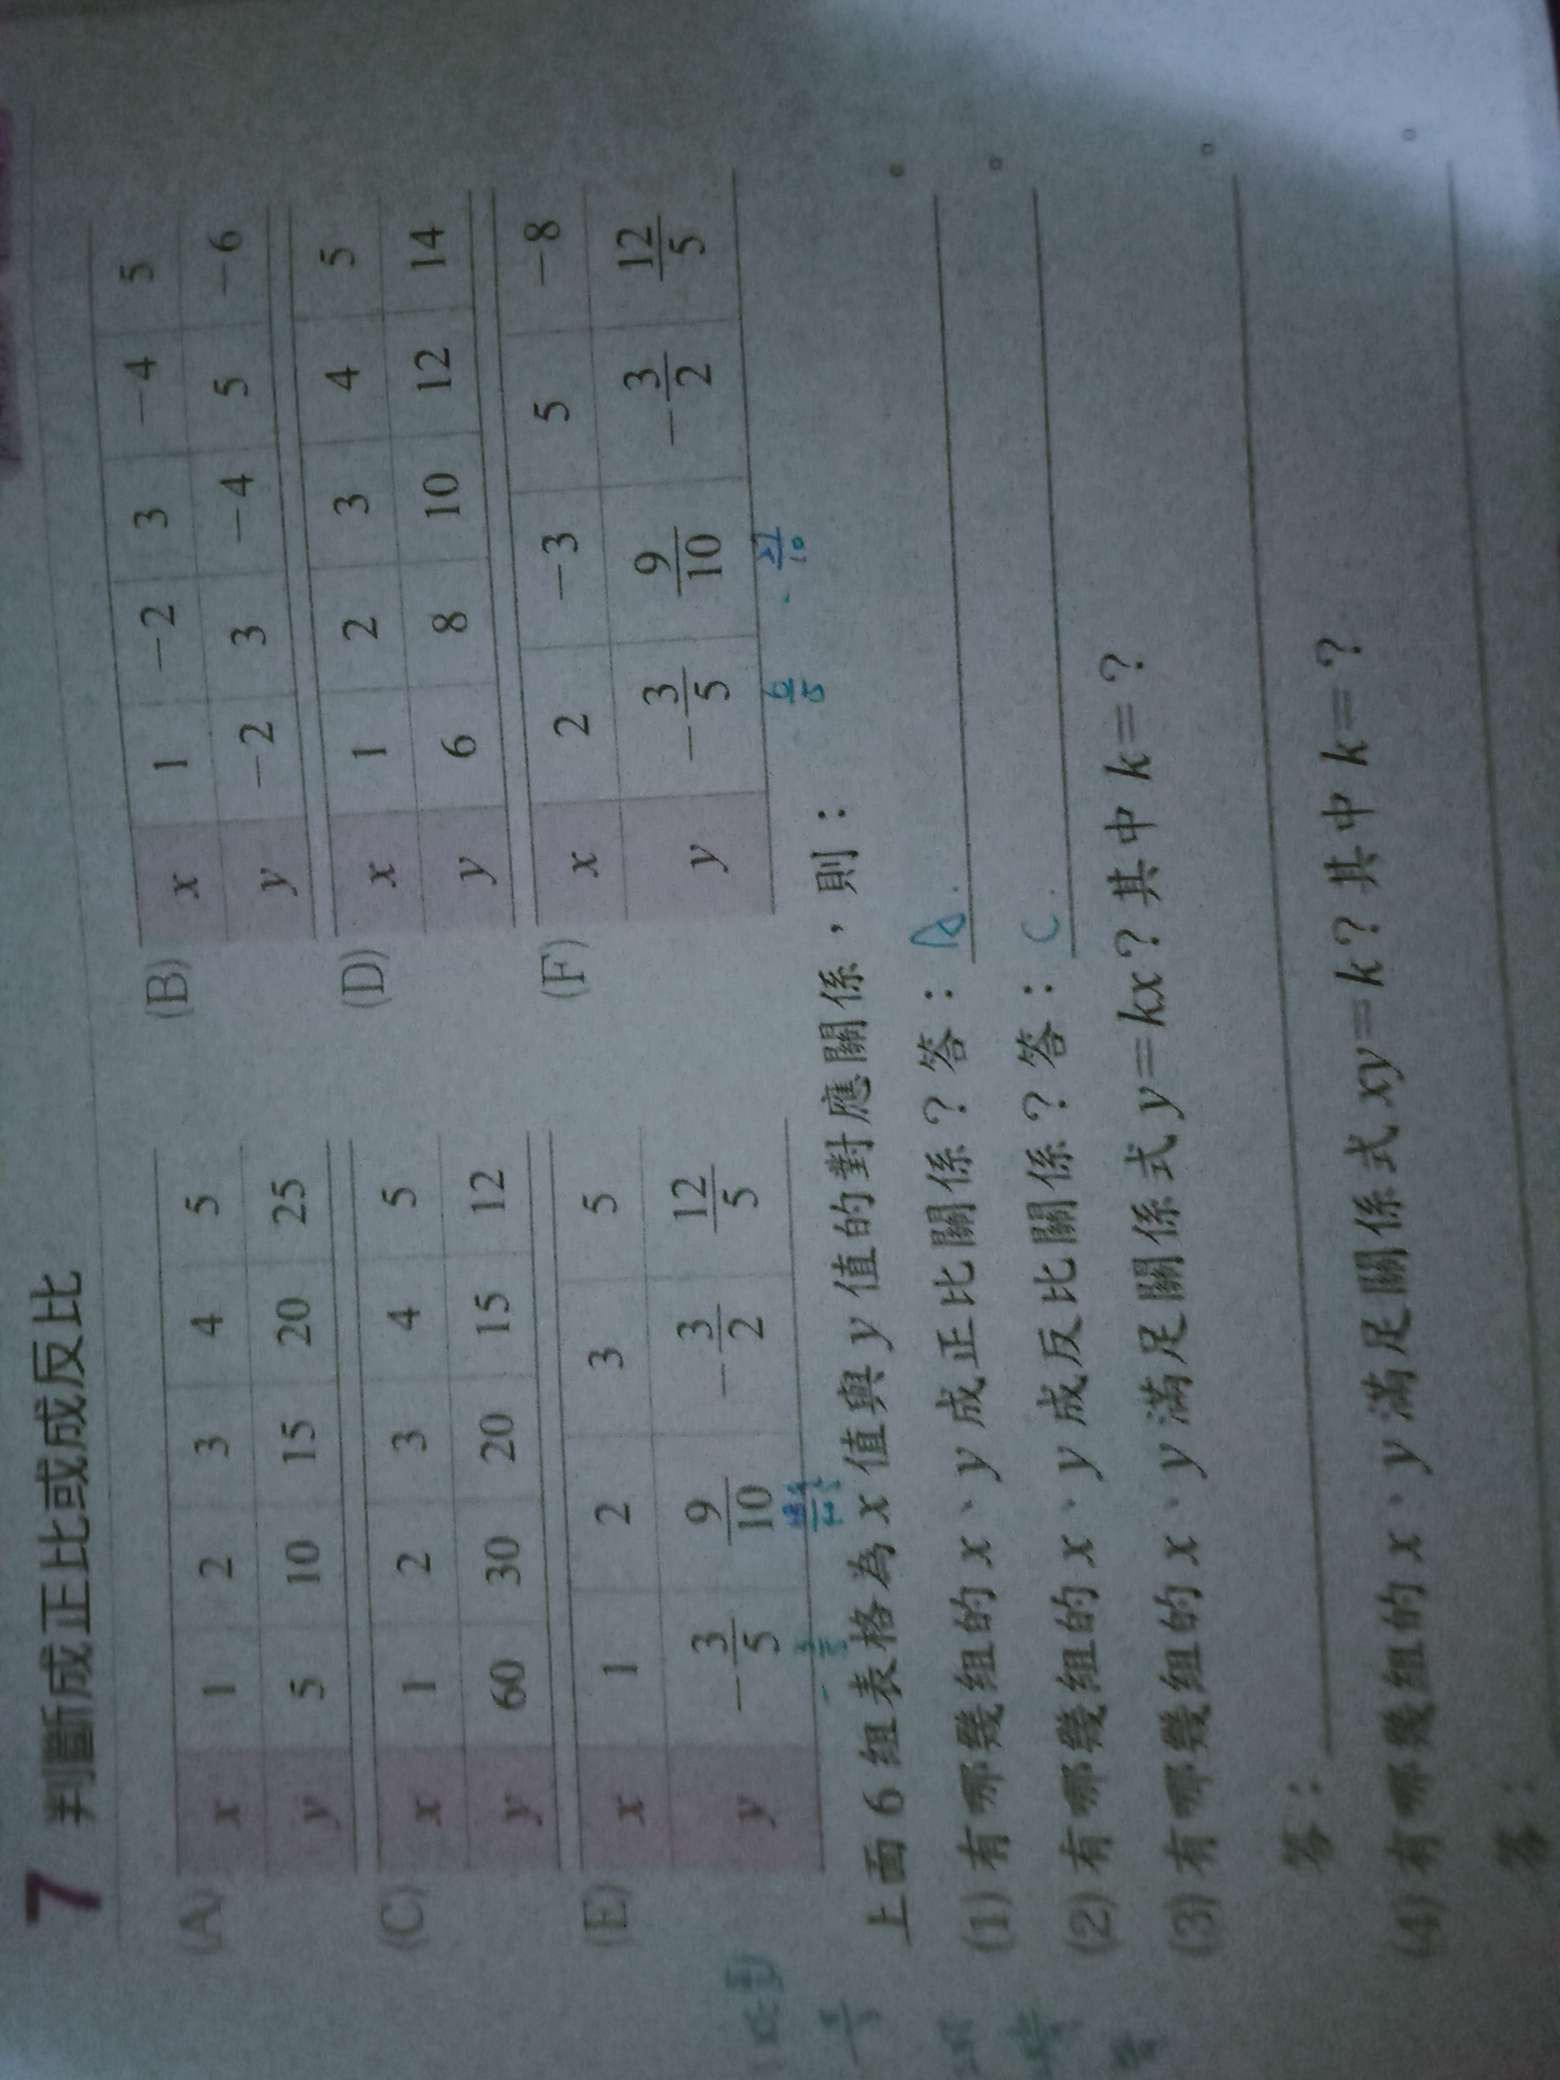 7 判斷成正比或成反比
(A) x 1 2 3 4 5
y 5 10 15 20 25
(B) x 1 −2 3 −4 5
y −2 3 −4 5 −6
(C) x 1 2 3 4 5
y 60 30 20 15 12
(D) x 1 2 3 4 5
y 6 8 10 12 14
(E) x 1 2 3 5
y −3/5 9/10 −3/2 12/5
(F) x 2 −3 5 −8
y −3/5 9/10 −3/2 12/5
6/5 27/10
上面 6 組表格為 x 值與 y 值的對應關係，則：
(1) 有哪幾組的 x、y 成正比關係？答：A 。
(2) 有哪幾組的 x、y 成反比關係？答：C 。
(3) 有哪幾組的 x、y 滿足關係式 y=kx？其中 k=？
答： 。
(4) 有哪幾組的 x、y 滿足關係式 xy=k？其中 k=？
答： 。